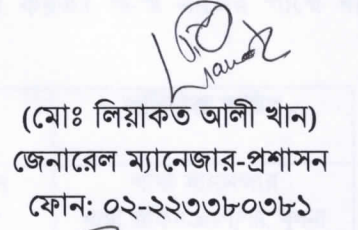 (মোঃ লিয়াকত আলী খান)
জেনারেল ম্যানেজার-প্রশাসন
ফোন: ০২-২২৩৩৮০৩৮১